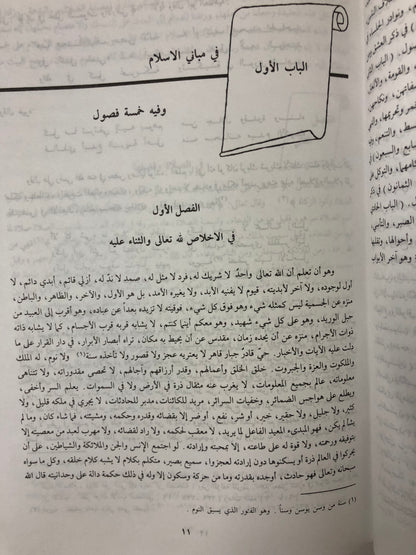 الباب الأول
في مباني الاسلام
وفيه خمسة فصول
الفصل الأول
في الاخلاص لله تعالى والثناء عليه
وهو أن تعلم أن الله تعالى واحدٌ لا شريك له، فرد لا مثل له، صمد لا ندّ له، أزلي قائم، أبدي دائم، لا
أول لوجوده، ولا آخر لأبديته، قيوم لا يفنيه الأبد، ولا يغيره الأمد، بل هو الأول، والآخر، والظاهر، والباطن،
منزه عن الجسمية ليس كمثله شيء وهو فوق كل شيء، فوقيته لا تزيده بعداً عن عباده، وهو أقرب إلى العبيد من
حبل الوريد، وهو على كل شيء شهيد، وهو معكم أينما كنتم، لا يشابه قربه قرب الأجسام، كما لا يشابه ذاته
ذوات الأجرام، منزه عن أن يحده زمان، مقدس عن أن يحيط به مكان، تراه أبصار الأبرار، في دار القرار على ما
دلت عليه الآيات والأخبار. حيّ قادرٌ جبار قاهر لا يعتريه عجزٌ ولا قصور ولا تأخذه سنة(١) ولا نوم، له الملك
والملكوت والعزة والجبروت. خلق الخلق وأعمالهم، وقدر أرزاقهم وآجالهم، لا تحصى مقدوراته، ولا تتناهى
معلوماته، عالم بجميع المعلومات، لا يعزب عنه مثقال ذرة في الأرض ولا في السموات. يعلم السر وأخفى،
ويطلع على هواجس الضمائر، وخفيات السرائر، مريد للكائنات، مدبر للحادثات، لا يجري في ملكه قليل، ولا
كثير، ولا جليل، ولا حقير، خير، أو شر، نفع، أو ضر إلا بقضائه وقدره وحكمه، ومشيئته، فما شاء كان، وما لم
يشأ لم يكن، فهو المبدىء المعيد الفاعل لما يريد، لا معقب لحكمه، ولا راد لقضائه، ولا مهرب لعبد من معصيته إلا
بتوفيقه ورحمته، ولا قوة له على طاعته، إلا بمحبته وإرادته. لو اجتمع الإنس والجن والملائكة والشياطين، على أن
يحركوا في العالم ذرة أو يسكنوها دون إرادته لعجزوا، سميع بصير، متكلم بكلام لا يشبه كلام خلقه، وكل ما سواه
سبحانه وتعالى فهو حادث، أوجده بقدرته وما من حركة وسكون إلا وله في ذلك حكمة دالة على وحدانيته قال الله
(١) سنة من وسن يوسن وسناً. وهو الفتور الذي يسبق النوم.
١١